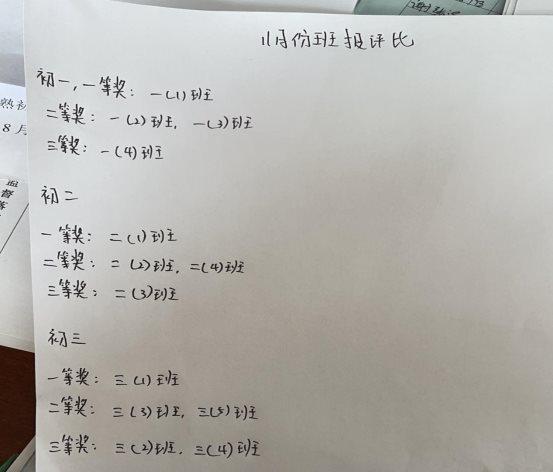 11月份班报评比
初一，一等奖：一(1)班
二等奖：一(2)班，一(3)班
三等奖：一(4)班
初二
一等奖：二(1)班
二等奖：二(2)班，二(4)班
三等奖：二(3)班
初三
一等奖：三(1)班
二等奖：三(3)班，三(5)班
三等奖：三(2)班，三(4)班
8月
监
督